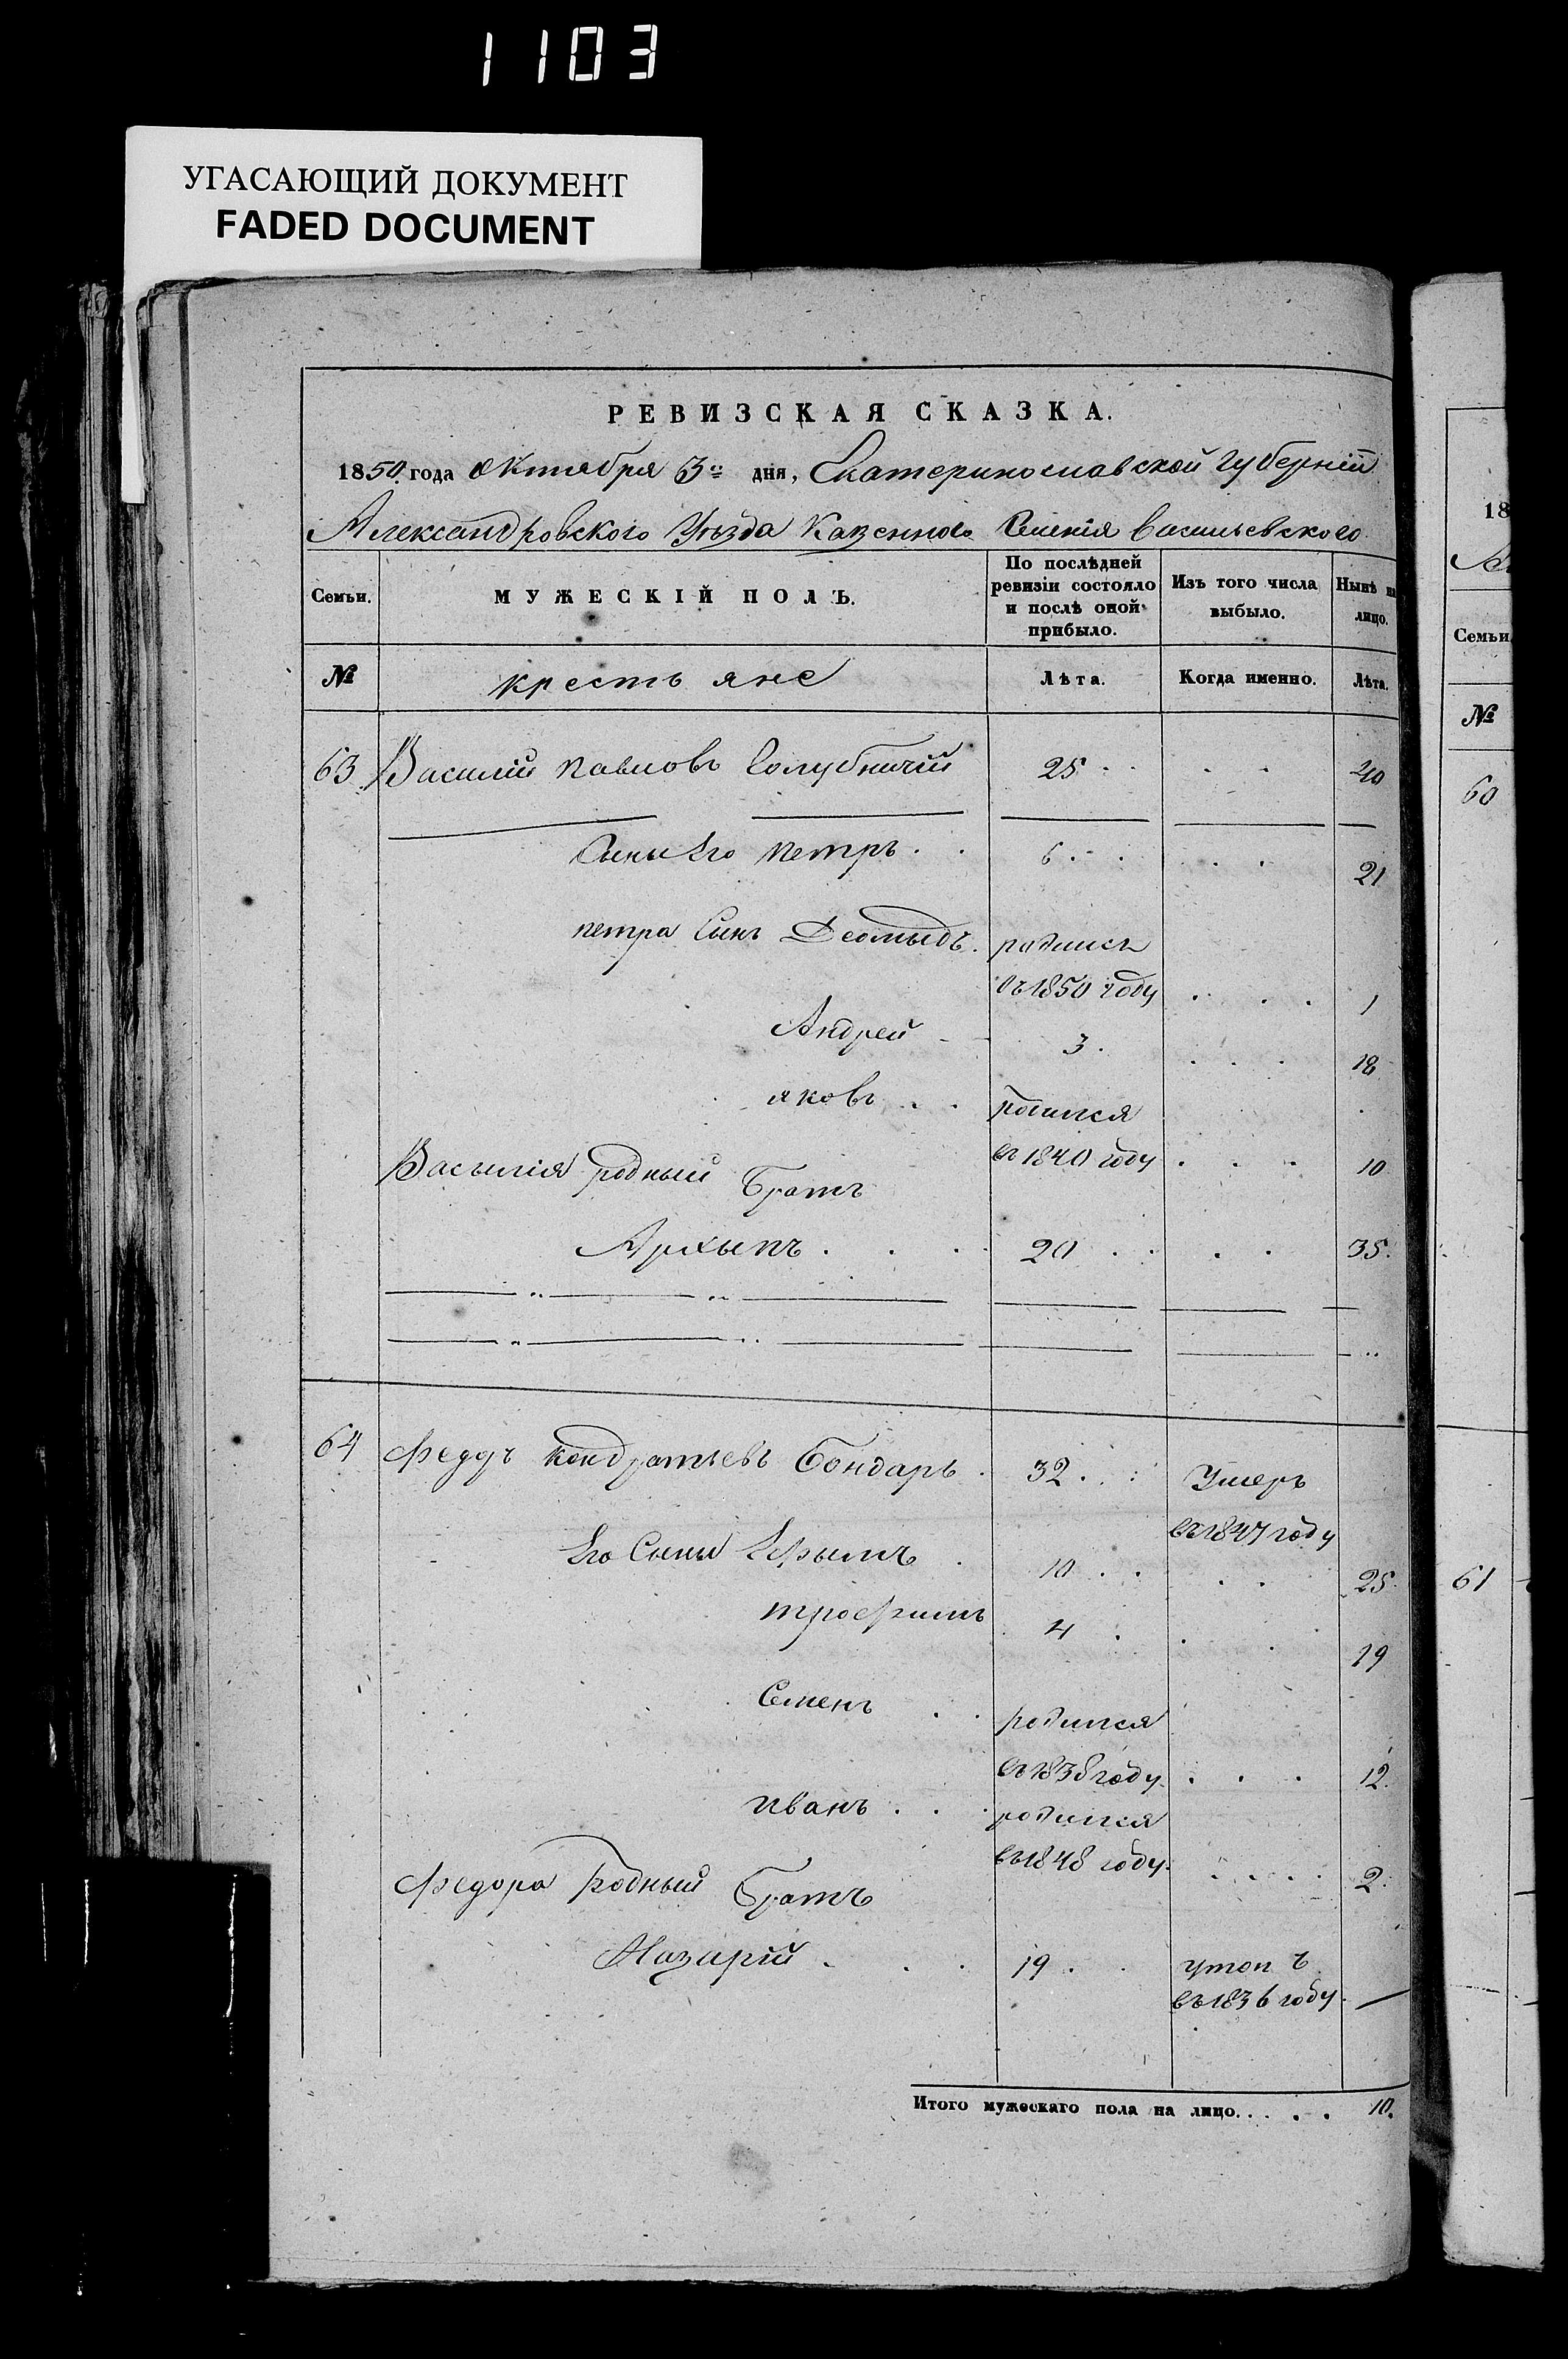 1103
УГАСАЮЩИЙ ДОКУМЕНТ
FADED DOCUMENT
РЕВИЗСКАЯ СКАЗКА.
1850 года октября 3го дня, Екатеринославской губерніи
Александровского Уезда Казенного Селенія Васильевского
Семьи. МУЖЕСКІЙ ПОЛЪ. По послѣдней ревизіи состояло и послѣ оной прибыло. Изъ того числа выбыло. Нынѣ на лицо.
№ крестьяне Лѣта. Когда именно. Лѣта.
63 Василій Павловъ Голубничій 25 40
Сыны Его Петръ 6 21
Петра Сынъ Деомыдъ родился
въ 1850 году 1
Андрей 3 18
Яковъ родился
въ 1840 году 10
Василія родный Братъ
Архыпъ 20 35
64 Федоръ Кондратьевъ Бондарь 32 Умеръ
въ 1847 году
Его Сыны Ефымъ 10 25
Трофимъ 4 19
Семенъ родился
въ 1838 году 12
Иванъ родился
въ 1848 году 2
Федора Родный Братъ
Назарій 19 утопъ
въ 1836 году —
Итого мужескаго пола на лицо 10.
18
Семьи
№
60
61